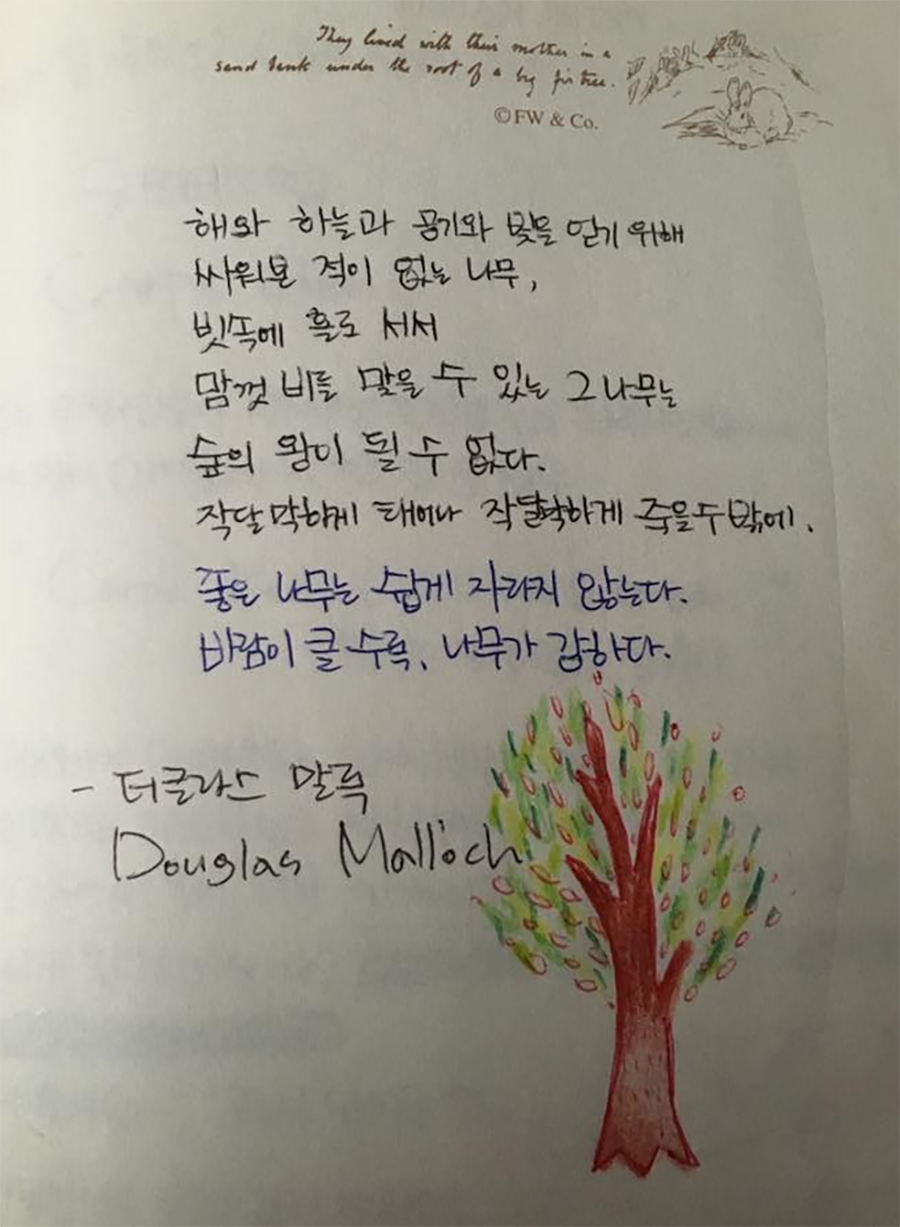 They lived with their mother in a
sand bank under the root of a big fir tree.
©FW & Co.
해와 하늘과 공기와 빛을 얻기 위해
싸워본 적이 없는 나무,
빗속에 홀로 서서
맘껏 비를 맞을 수 있는 그 나무는
숲의 왕이 될 수 없다.
작달막하게 태어나 작달막하게 죽을수밖에.
좋은 나무는 쉽게 자라지 않는다.
바람이 클수록, 나무가 강하다.
- 더글라스 말록
Douglas Malloch